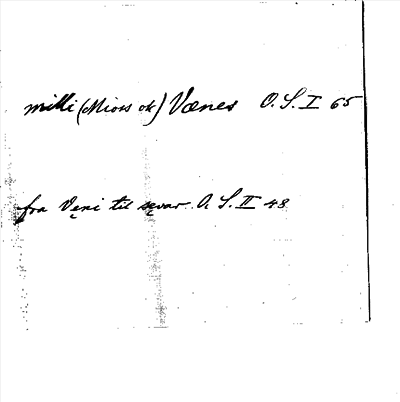 milli (Miors ok) Vænes O. S. I 65
fra Vęni til sęvar. O. S. II 48